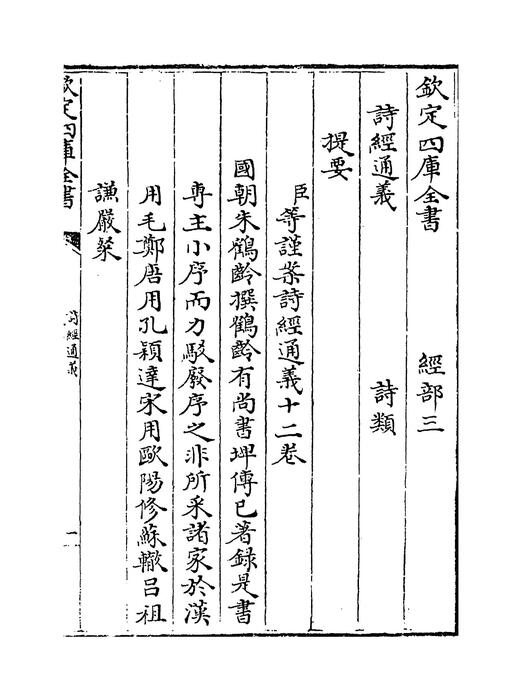 欽定四庫全書　經部三
詩經通義　詩類
提要
臣等謹案詩經通義十二卷
國朝朱鶴齡撰鶴齡有尚書埤傳已著録是書
専主小序而力駁廢序之非所采諸家於漢
用毛鄭唐用孔穎達宋用歐陽修蘇轍呂祖
謙嚴粲
欽定四庫全書
詩經通義
一